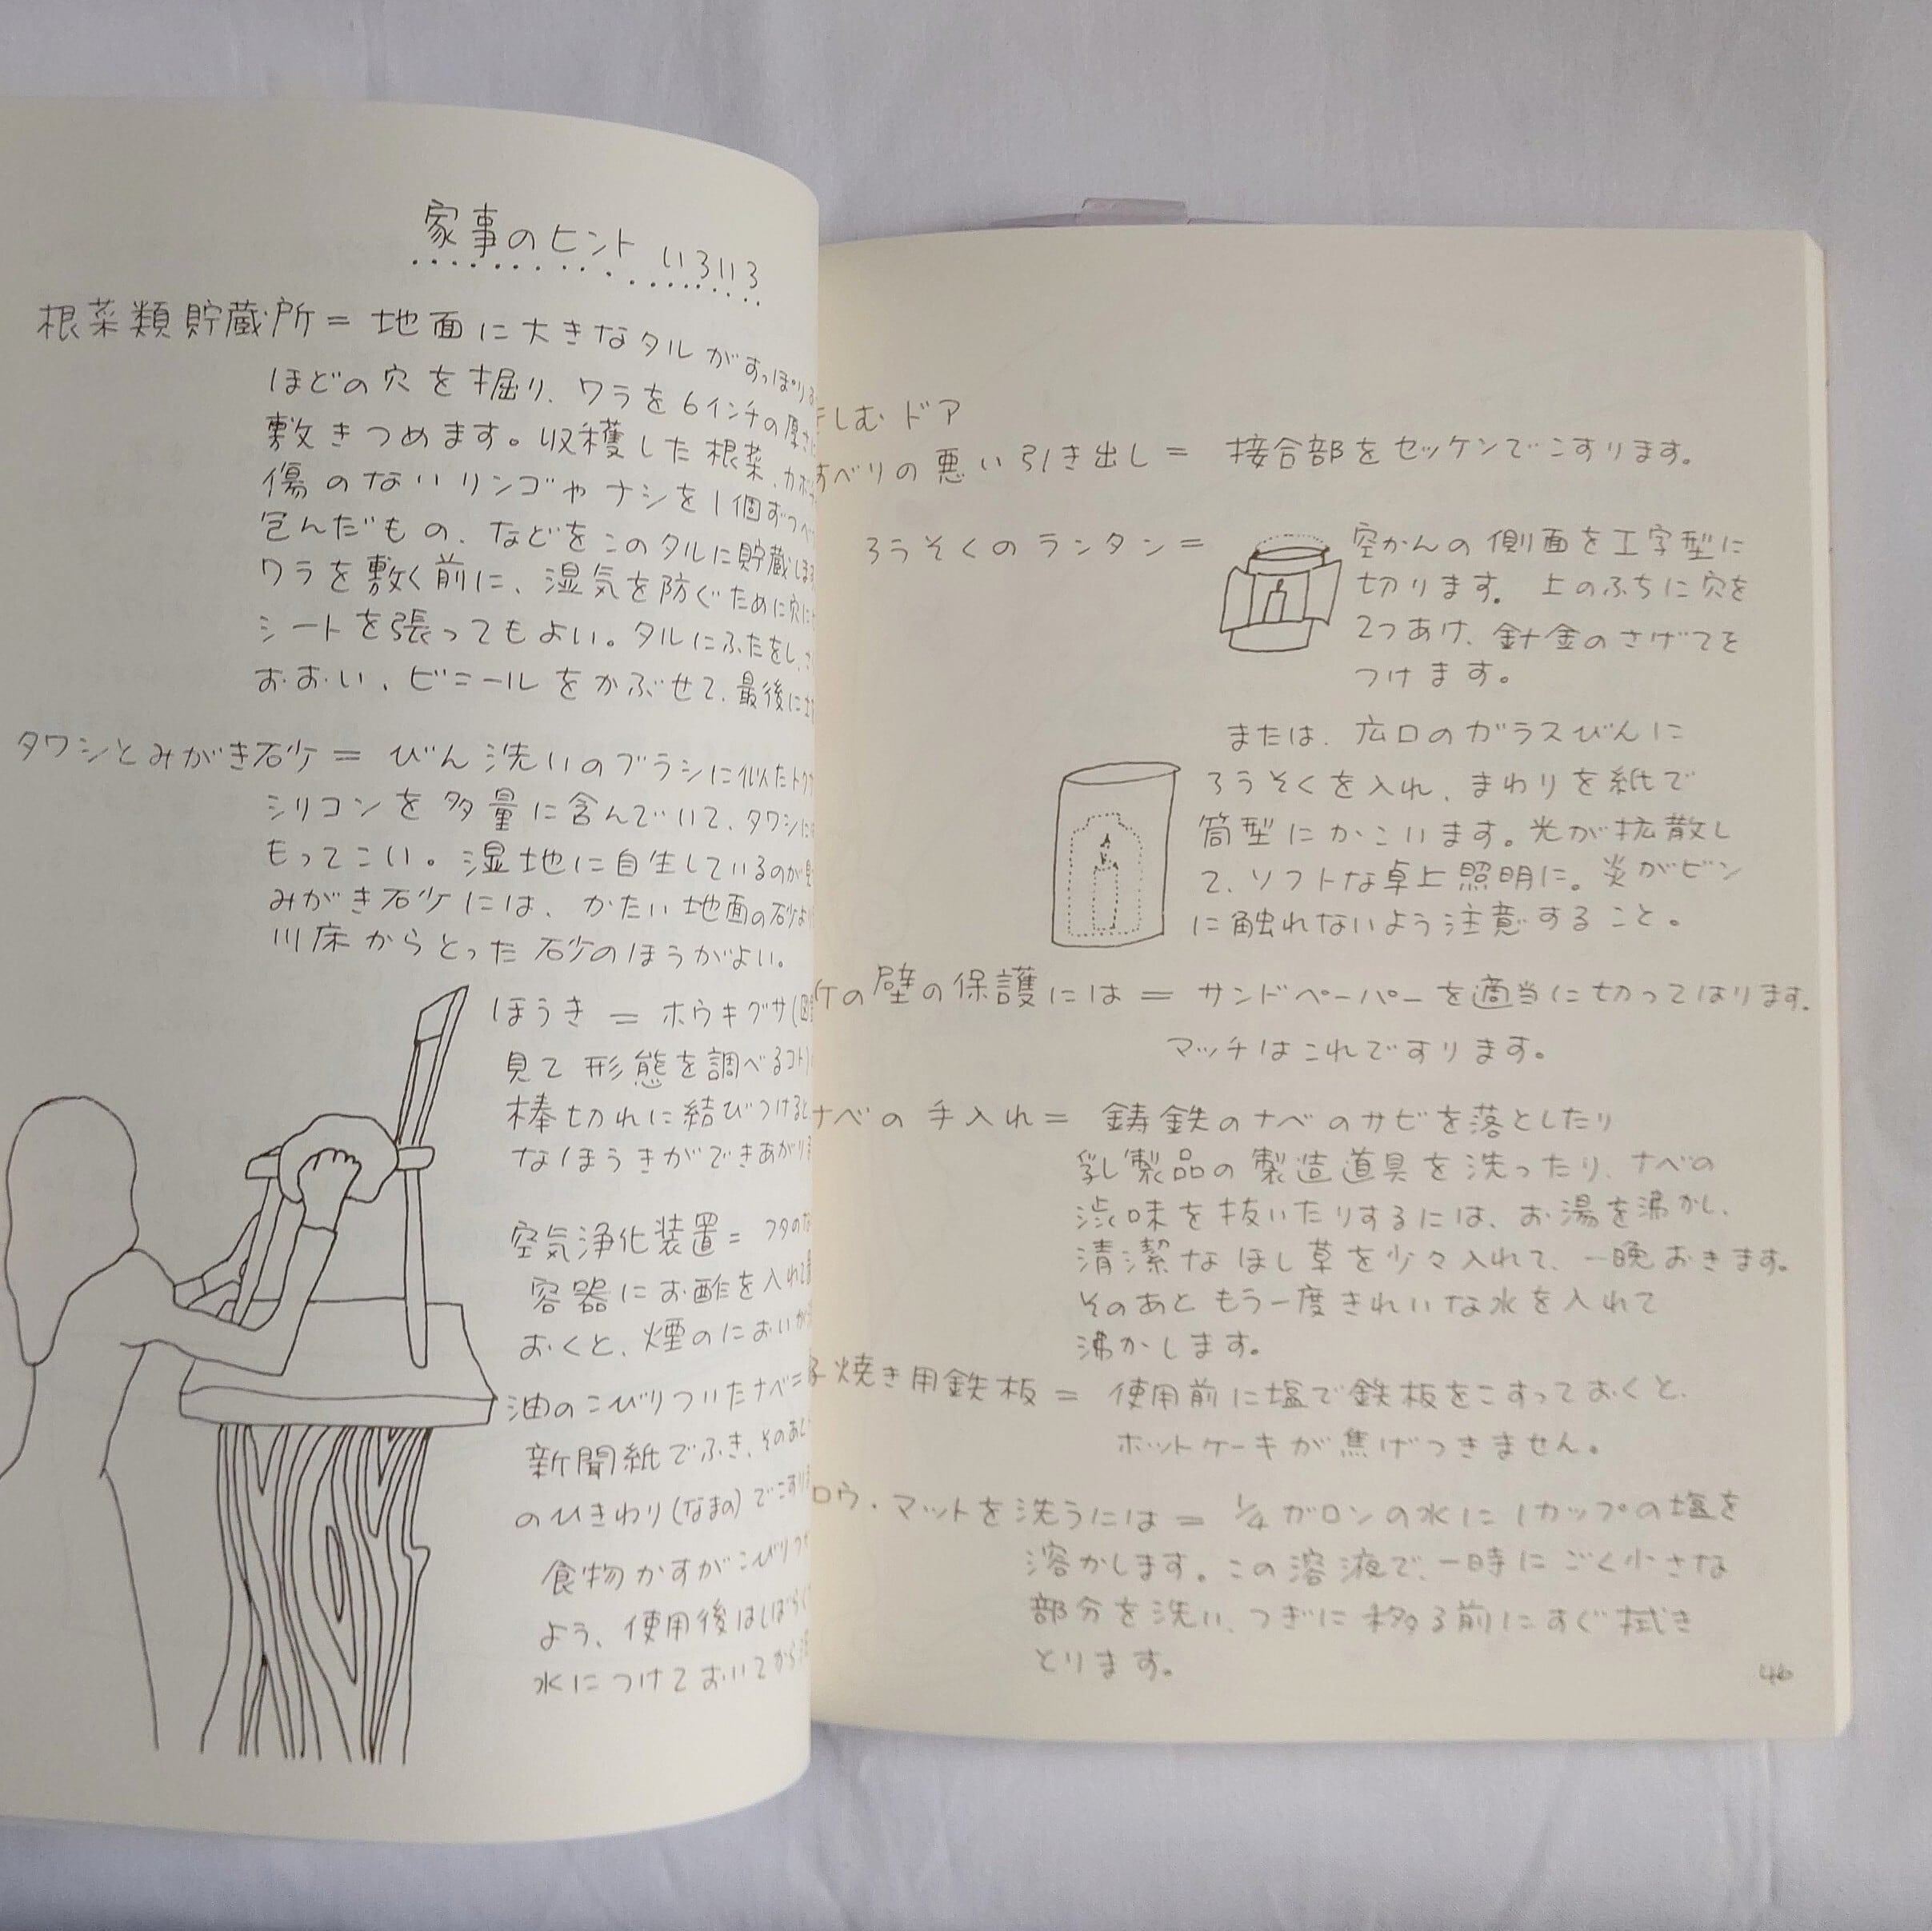 家事のヒント いろいろ
根菜類貯蔵所＝地面に大きなタルがすっぽり
ほどの穴を掘り、ワラを6インチの厚さ
敷きつめます。収穫した根菜、カボ
傷のないリンゴやナシを1個ずつ
包んだもの、などをこのタルに貯蔵しま
ワラを敷く前に、湿気を防ぐために穴に
シートを張ってもよい。タルにふたをし、
おおい、ビニールをかぶせて、最後に
タワシとみがき石ケ＝びん洗いのブラシに似たトク
シリコンを多量に含んでいて、タワシに
もってこい。湿地に自生しているのが
みがき石ケには、かたい地面の砂より
川床からとった砂のほうがよい。
ほうき＝ホウキグサ(図
見て形態を調べるコト)
棒切れに結びつけると
なほうきができあがり
空気浄化装置＝フタの
容器にお酢を入れて
おくと、煙のにおいが
油のこびりついたナベ＝
新聞紙でふき、そのあと
のひきわり(なまの)でこすり
食物かすがこびりつか
よう、使用後はしばらく
水につけておいてから
きしむドア
すべりの悪い引き出し＝接合部をセッケンでこすります。
ろうそくのランタン＝
空かんの側面を工字型に
切ります。上のふちに穴を
2つあけ、針金のさげてを
つけます。
または、広口のガラスびんに
ろうそくを入れ、まわりを紙で
筒型にかこいます。光が拡散し
て、ソフトな卓上照明に。炎がビン
に触れないよう注意すること。
の壁の保護には＝サンドペーパーを適当に切ってはります。
マッチはこれですります。
ナベの手入れ＝鋳鉄のナベのサビを落としたり
乳製品の製造道具を洗ったり、ナベの
渋味を抜いたりするには、お湯を沸かし、
清潔なほし草を少々入れて、一晩おきます。
そのあともう一度きれいな水を入れて
沸かします。
焼き用鉄板＝使用前に塩で鉄板をこすっておくと、
ホットケーキが焦げつきません。
ロウ・マットを洗うには＝1/4ガロンの水に1カップの塩を
溶かします。この溶液で、一時にごく小さな
部分を洗い、つぎに移る前にすぐ拭き
とります。
46